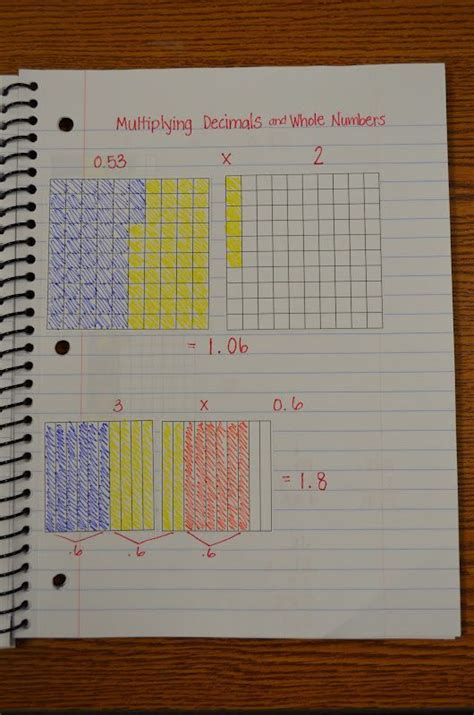 Multiplying Decimals and Whole Numbers
0.53 x 2
= 1.06
3 x 0.6
= 1.8
.6 .6 .6